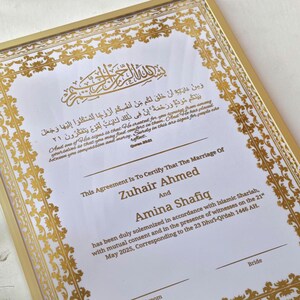 بسم الله الرحمن الرحيم
وَمِنْ آيَاتِهِ أَنْ خَلَقَ لَكُم مِّنْ أَنفُسِكُمْ أَزْوَاجًا لِّتَسْكُنُوا إِلَيْهَا وَجَعَلَ
بَيْنَكُم مَّوَدَّةً وَرَحْمَةً إِنَّ فِي ذَٰلِكَ لَآيَاتٍ لِّقَوْمٍ يَتَفَكَّرُونَ ٢١
And one of His signs is that He created for you spouses from among
yourselves so that you may find comfort in them. And He has placed
between you compassion and mercy. Surely in this are signs for people who
This Agreement Is To Certify That The Marriage Of
Zuhair Ahmed
And
Amina Shafiq
has been duly solemnized in accordance with Islamic Shariah,
with mutual consent and in the presence of witnesses on the 21st
May 2025, Corresponding to the 23 Dhu'l-Qi'dah 1446 AH.
Bride